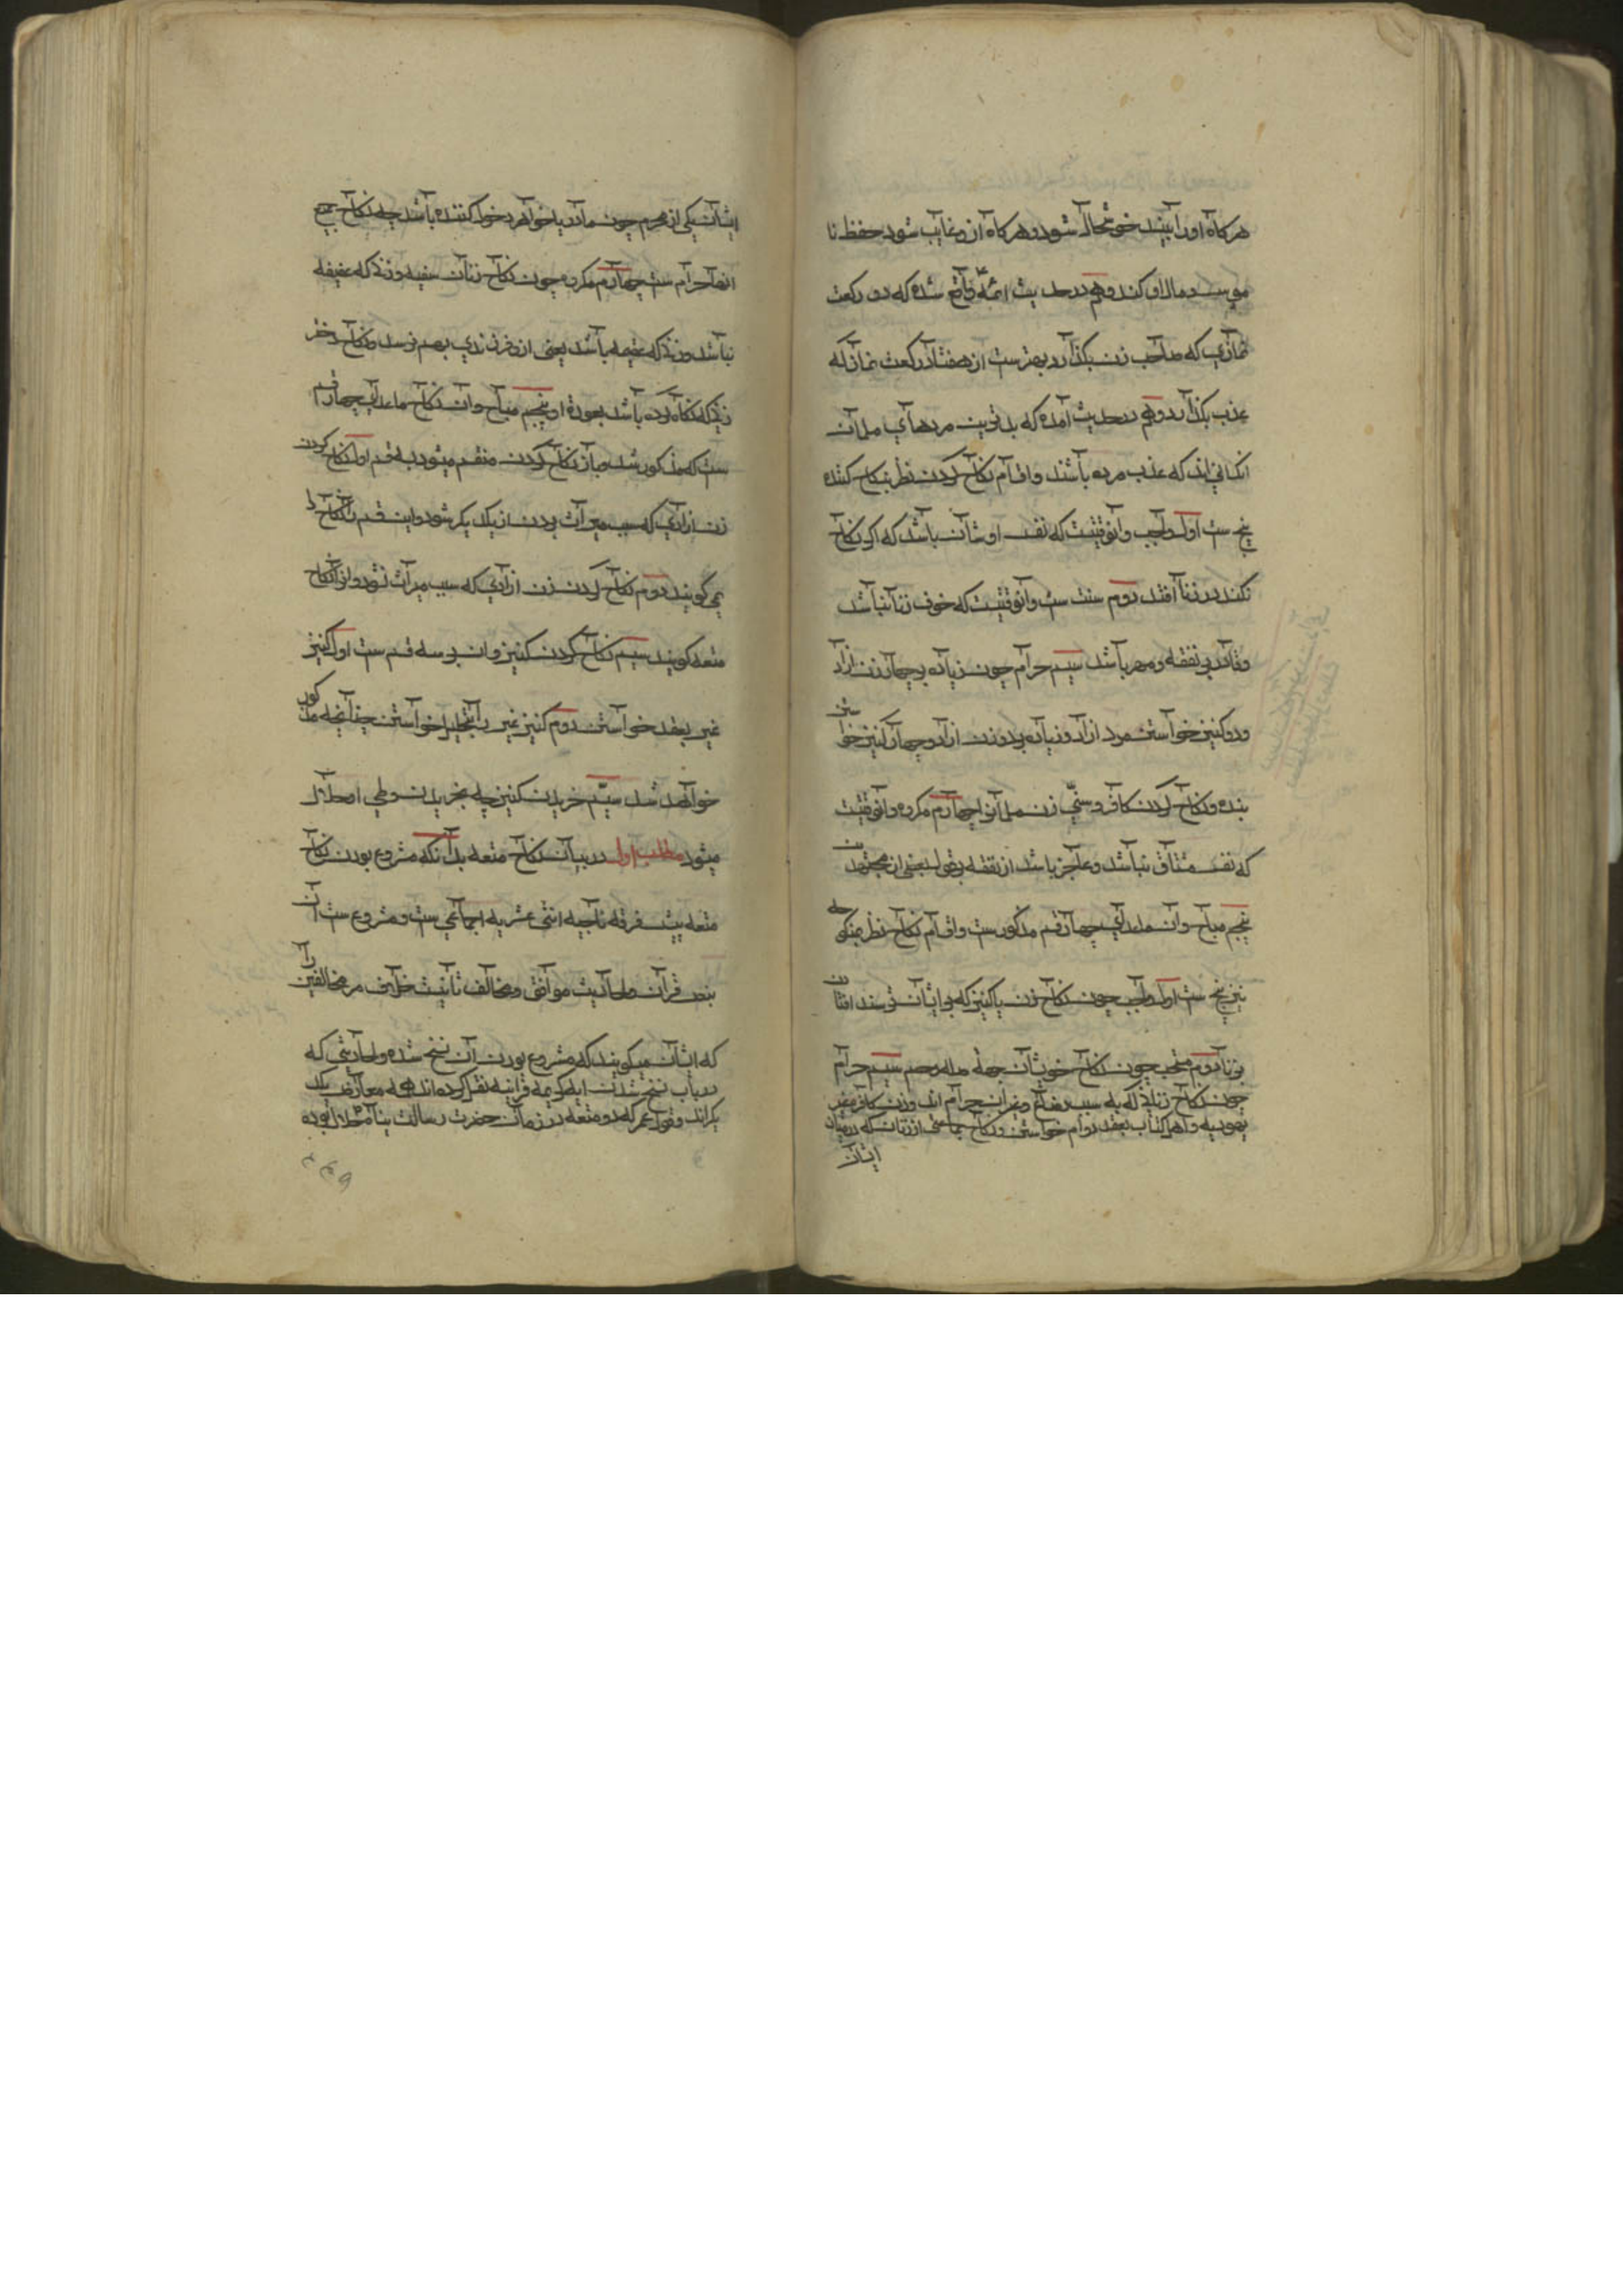 هرکاه اورا بیند خوشحال شود و هرکاه ازو غایب شود حفظ نا
موس و مال او کند و هم در حدیث ائمه ع واقع شده که دو رکعت
نمازی که صاحب زن بکذارد بهترست از هفتاد رکعت نماز که
عذب بکذارد و هم در حدیث آمده که بدترین مردهای مسلمانان
انکسانی اند که عذب مرده باشند و اقسام نکاح کردن نظر بنکاح کننده
پنج ست اول واجب و آنوقتیست که نفس او شایان باشد که اکر نکاح
نکند در زنا افتد دوم سنت ست و آنوقتیست که خوف زنا نباشد
وقادر بر نفقه و مهر باشد سیم حرام چون زیاده بر چهار زن ازاد
و دو کنیز خواستن مرد ازاد و زیاده بر دو زن ازاد و چهار کنیز خواستن
بنده و نکاح کردن کافر و سنی زن مسلمانرا چهارم مکروه و آنوقتیست
که نفس مشتاق نباشد و عاجز باشد از نفقه بر قول بعضی از مجتهدین
پنجم مباح و آن ماعدای چهار قسم مذکورست و اقسام نکاح نظر بمنکوحه
نیز پنج ست اول واجب چون نکاح زن یا کنیز که بر ایشان ترسند افتادن
بزنا دوم مستحب چون نکاح خویشان بجهة صله رحم سیم حرام
چون نکاح زنانی که به سبب رضاع و غیر ان حرام اند و زن کافر غیر
یهودیه و اهل کتاب بعقد دوام خواستن و نکاح جماعتی از زنان که در میان
ایشان
ایشان یکی از محرم چون مادر یا خواهر دخول کننده باشد چه نکاح جمیع
انها حرام ست چهارم مکروه چون نکاح زنان سفیه و زنی که عفیفه
نباشد و زنی که عقیمه باشد یعنی از و فرزندی بهم نرسد و نکاح دختر
زنی که نکاه کرده باشد بعورة او پنجم مباح و آن نکاح ماعدای چهار قسم
ست که مذکور شد و باز نکاح کردن منقسم میشود به قسم اول نکاح کردن
زن ازادی که سبب میراث بردن از یکدیکر شود و این قسم را نکاح
می کویند دوم نکاح کردن زن ازادی که سبب میراث نشود و انرا نکاح
متعه کویند سیم نکاح کردن کنیز و ان بر سه قسم ست اول کنیز
غیر بعقد خواستن دوم کنیز غیر را بتحلیل خواستن چنانچه مذکور
خواهد شد سیم خریدن کنیز چه بخریدن وطی او حلال
میشود مطلب اول در بیان نکاح متعه بدانکه مشروع بودن نکاح
متعه پیش فرقه ناجیه اثنی عشریه اجماعی ست و مشروع ست آن
بنص قران و احادیث موافق و مخالف ثابت مر مخالفین را
که ایشان میکویند که مشروع بودن آن نسخ شده و احادیثی که
در باب نسخ شدن ایه کریمه قرانیه نقل کرده اند همه معارض یکد
یکراند و قول عمر که دو متعه در زمان حضرت رسالت پناه ص حلال بوده